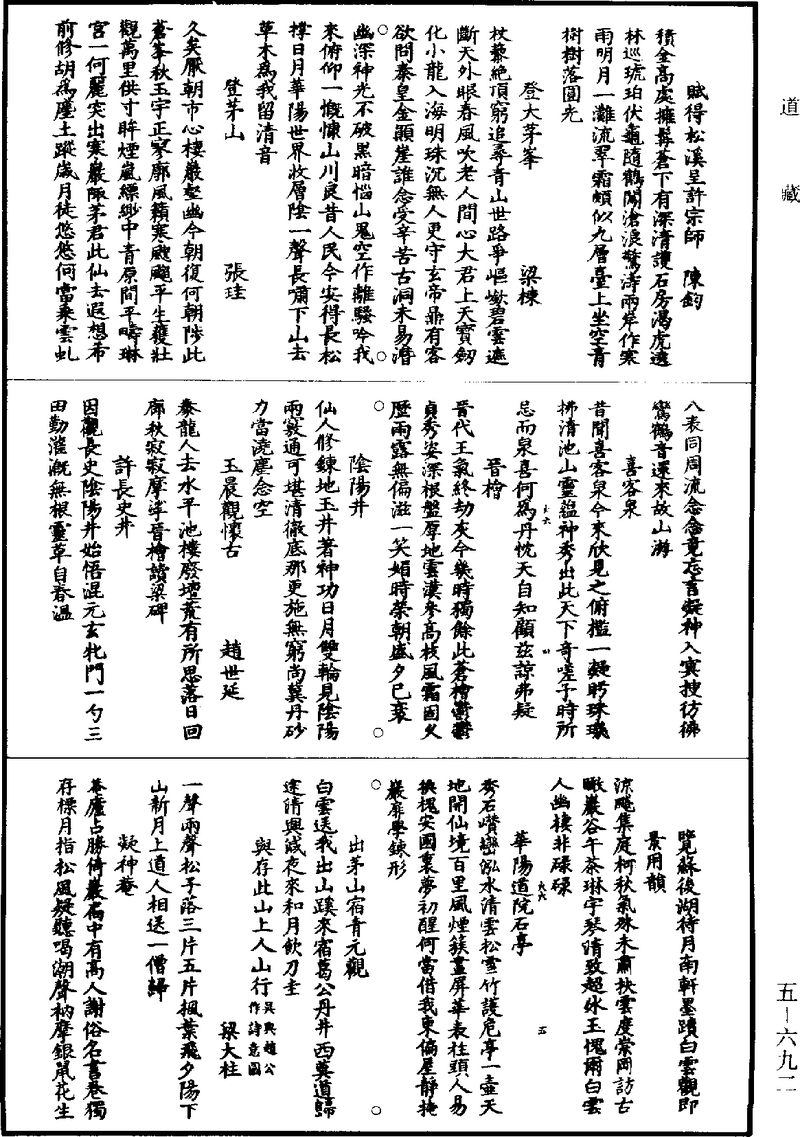 道藏
賦得松溪呈許宗師　陳鈞
積金高處擁髯蒼下有深清護石房渴虎遶
林巡琥珀伏龜隨鶴鬧滄浪驚濤兩岸作寒
雨明月一灘流翠霜頗似九層臺上坐空青
樹樹落圓光
登大茅峯　梁棟
杖藜絶頂窮追尋青山世路爭嶇嶔碧雲遮
斷天外眼春風吹老人間心大君上天寶劒
化小龍入海明珠沉無人更守玄帝鼎有客
欲問秦皇金顛崖誰念受辛苦古洞未易潛
幽深神光不破黑暗惱山鬼空作離騷吟我
來俯仰一慨慷山川良昔人民今安得長松
撑日月華陽世界收層陰一聲長嘯下山去
草木爲我留清音
登茅山　張珪
久矣厭朝市心棲巖壑幽今朝復何朝陟此
蒼峯秋玉宇正寥廓風籟寒颼颼平生獲壯
觀萬里供寸眸煙嵐縹緲中青原間平疇琳
宮一何麗突出寒巖陬茅君此仙去遐想希
前修胡爲塵土蹤歲月徒悠悠何當乘雲虬
八表同周流念念竟忘言凝神入冥搜彷彿
鸞鶴音還來故山游
喜客泉
昔聞喜客泉今來欣見之俯檻一凝眄珠璣
拂清池山靈蘊神秀出此天下奇嗟予時所
忌而泉喜何爲丹忱天自知顧兹諒弗疑
晉檜
晉代王氣終劫灰今幾時獨餘此蒼檜鬱鬱
貞秀姿深根盤厚地雲漢參高枝風霜固久
歷雨露無偏滋一笑媚時榮朝盛夕已衰
陰陽井
仙人修鍊地玉井著神功日月雙輪見陰陽
兩竅通可堪清徹底那更施無窮尚冀丹砂
力當澆塵念空
玉晨觀懷古　趙世延
豢龍人去水平池樓廢壇荒有所思落日回
廊秋寂寂摩挲晉檜讀梁碑
許長史井
因觀長史陰陽井始悟混元玄牝門一勺三
田勤漑漑無根靈草自春温
覽蘇後湖待月南軒墨蹟白雲觀即
景用韻
涼飈集庭柯秋氣殊未肅扶雲度崇岡訪古
瞰巖谷午茶琳宇琴清致超氷玉愧爾白雲
人幽棲非碌碌
華陽道院石亭
秀石巑巒泓水清雲松雪竹護危亭一壺天
地開仙境百里風煙簇畫屏華表柱頭人易
換槐安國裏夢初醒何當借我東偏屋靜掩
巖扉學錬形
出茅山宿青元觀
白雲送我出山蹊來宿葛公丹井西莫道歸
途清興減夜來和月飲刀圭
與存此山上人山行 吳興趙公作詩意圖　梁大柱
一聲兩聲松子落三片五片楓葉飛夕陽下
山新月上道人相送一僧歸
凝神菴
菴廬占勝倚巖扃中有高人謝俗名書卷獨
存標月指松風疑聽喝潮聲衲摩銀鼠花生
五－六九二